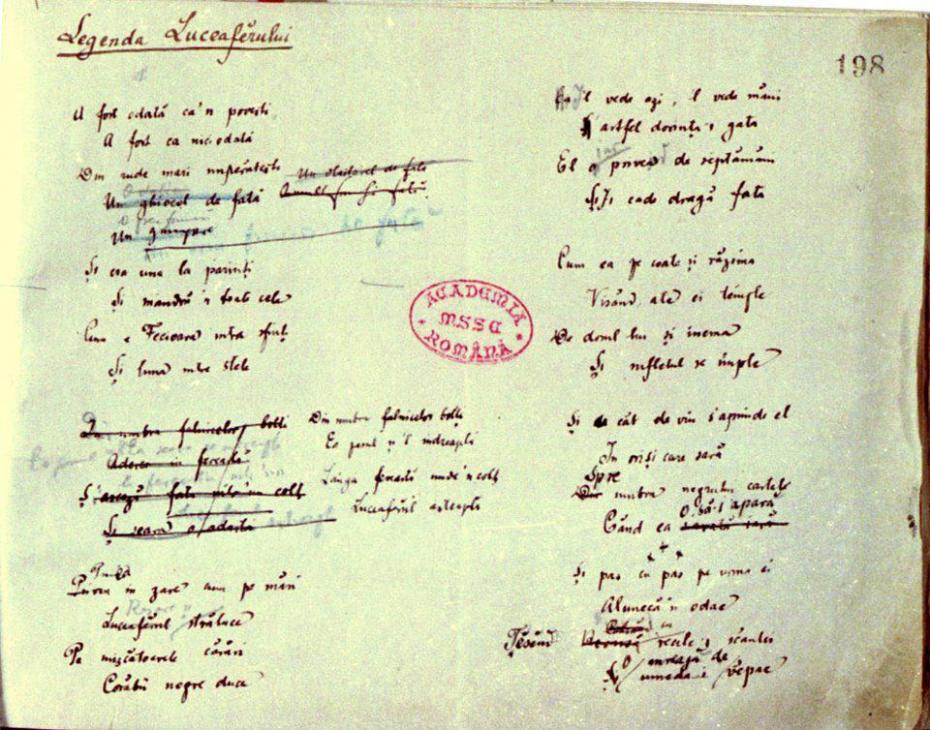 Legenda Luceafĕrului
198
A fost odată ca'n povești
A fost ca nici odată
Din rude mari împărătești
Un ghiocel de fată
Un
Și era una la părinți
Și mândră 'n toate cele
Cum e Fecioara între sfinți
Și luna între stele
Din umbra falnicelor bolți
Adesea în ferești
fata într'un colț
Și seara
Din umbra falnicelor bolți
Ea pasul și'l îndreaptă
Lângă fereastă unde 'n colț
Luceafĕrul așteaptă
Privea în zare cum pe mări
Luceafĕrul străluce
Pe mișcătoarele cărări
Corăbii negre duce
Îl vede azi, îl vede mâni
Astfel dorința-i gata
El de săptămâni
Îi cade dragă fata
Cum ea pe coate își răzima
Visând ale ei tâmple
De dorul lui și inema
Și sufletul se împle
Și de cât de viu s'aprinde el
În oriși care sară
Spre
umbra negrului castel
Când ea o să-i apară
Și pas cu pas pe urma ei
Alunecă 'n odae
Țesĕnd cu recile-i scântei
O mreajă de
văpae
ACADEMIA
MSSE
ROMÂNĂ